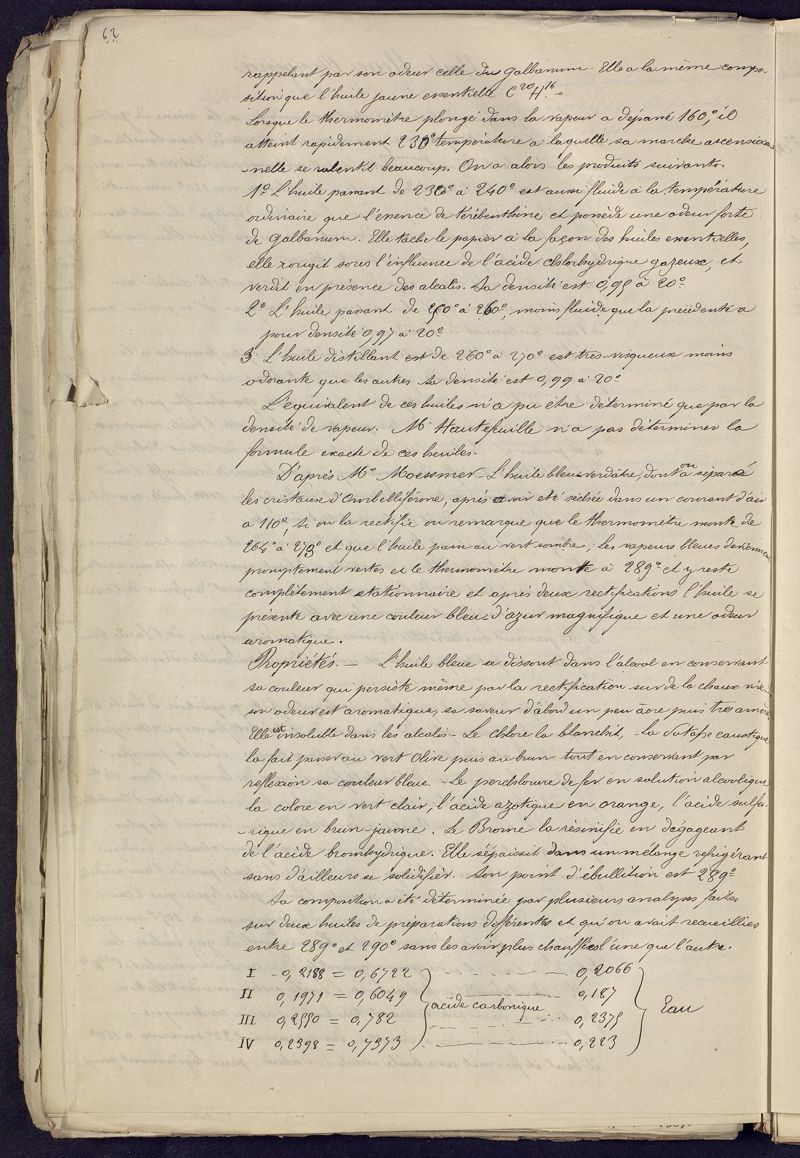 62
rappelant par son odeur celle du galbanum. Elle a la même compo-
sition que l'huile jaune essentielle C20H16. -
Lorsque le thermomètre plongé dans la vapeur a dépassé 160°, il
atteint rapidement 230° température a laquelle sa marche ascension-
-nelle se ralentit beaucoup. On a alors les produits suivants.
1° L'huile passant de 230° à 240° est aussi fluide à la température
ordinaire que l'essence de térébenthine et possède une odeur forte
de Galbanum. Elle tache le papier à la façon des huiles essentielles,
elle rougit sous l'influence de l'acide chlorhydrique gazeux, et
verdit en présence des alcalis. Sa densité est 0,95 à 20°
2° L'huile passant de 250° à 260°, moins fluide que la précédente a
pour densité 0,97 à 20°
3 L'huile distillant est de 260° à 270° est très visqueux moins
odorante que les autres. Sa densité est 0,99 à 20°
L'équivalent de ces huiles n'a pu être déterminé que par la
densité de vapeur. Mr Hautefeuille n'a pas déterminer la
formule exacte de ces huiles.
D'après Mr Moessmer. L'huile bleu-verdâtre, dont on a séparé
les cristaux d'Ombelliférone, après avoir été séchée dans un courant d'air
a 110°, si on la rectifie on remarque que le thermomètre monte de
264° à 273° et que l'huile passe au vert sombre; les vapeurs bleues deviennent
promptement vertes et le thermomètre monte à 289° et y reste
complètement stationnaire et après deux rectifications l'huile se
présente avec une couleur bleu-d'azur magnifique et une odeur
aromatique.
Propriétés. - L'huile bleue se dissout dans l'alcool en conservant
sa couleur qui persiste même par la rectification sur de la chaux vive
son odeur est aromatique, sa saveur d'abord un peu âcre puis très amère
Elle est insoluble dans les alcalis - Le chlore la blanchit. La Potasse caustique
la fait passer au vert olive puis au brun tout en conservant par
reflexion sa couleur bleue. - Le perchlorure de fer en solution alcoolique
la colore en vert clair, l'acide azotique en orange, l'acide sulfu-
-rique en brun-jaune. Le Brome la résinifie en dégageant
de l'acide bromhydrique. Elle s'épaissit dans un mélange refrigérant
sans d'ailleurs se solidifier. Son point d'ébullition est 289°
Sa composition a été déterminée par plusieurs analyses faites
sur deux huiles de préparations différentes et qu'on avait recueillies
entre 289° et 290° sans les avoir plus chauffées l'une que l'autre.
I - 0,2188 = 0,6722 - - - - - 0,2066
II 0,1971 = 0,6049 - - - - - 0,187
acide carbonique Eau
III 0,2550 = 0,782 - - - - - 0,2375
IV 0,2398 = 0,7373 - - - - - 0,223